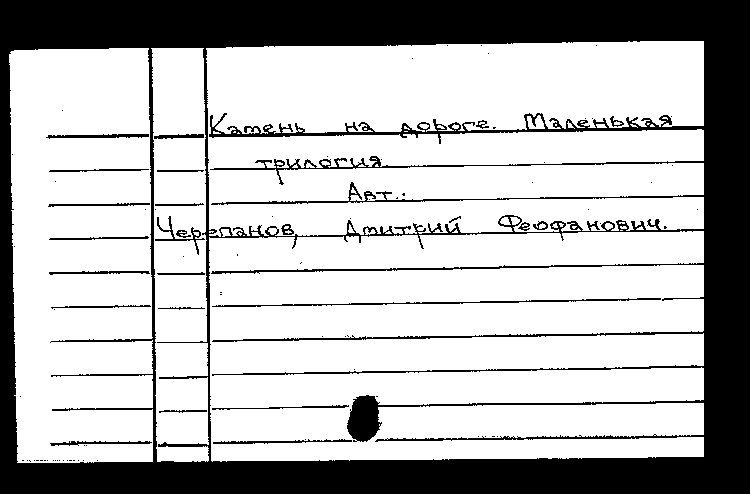 Камень на дороге. Маленькая
трилогия.
Авт.:
Черепанов, Дмитрий Феофанович.